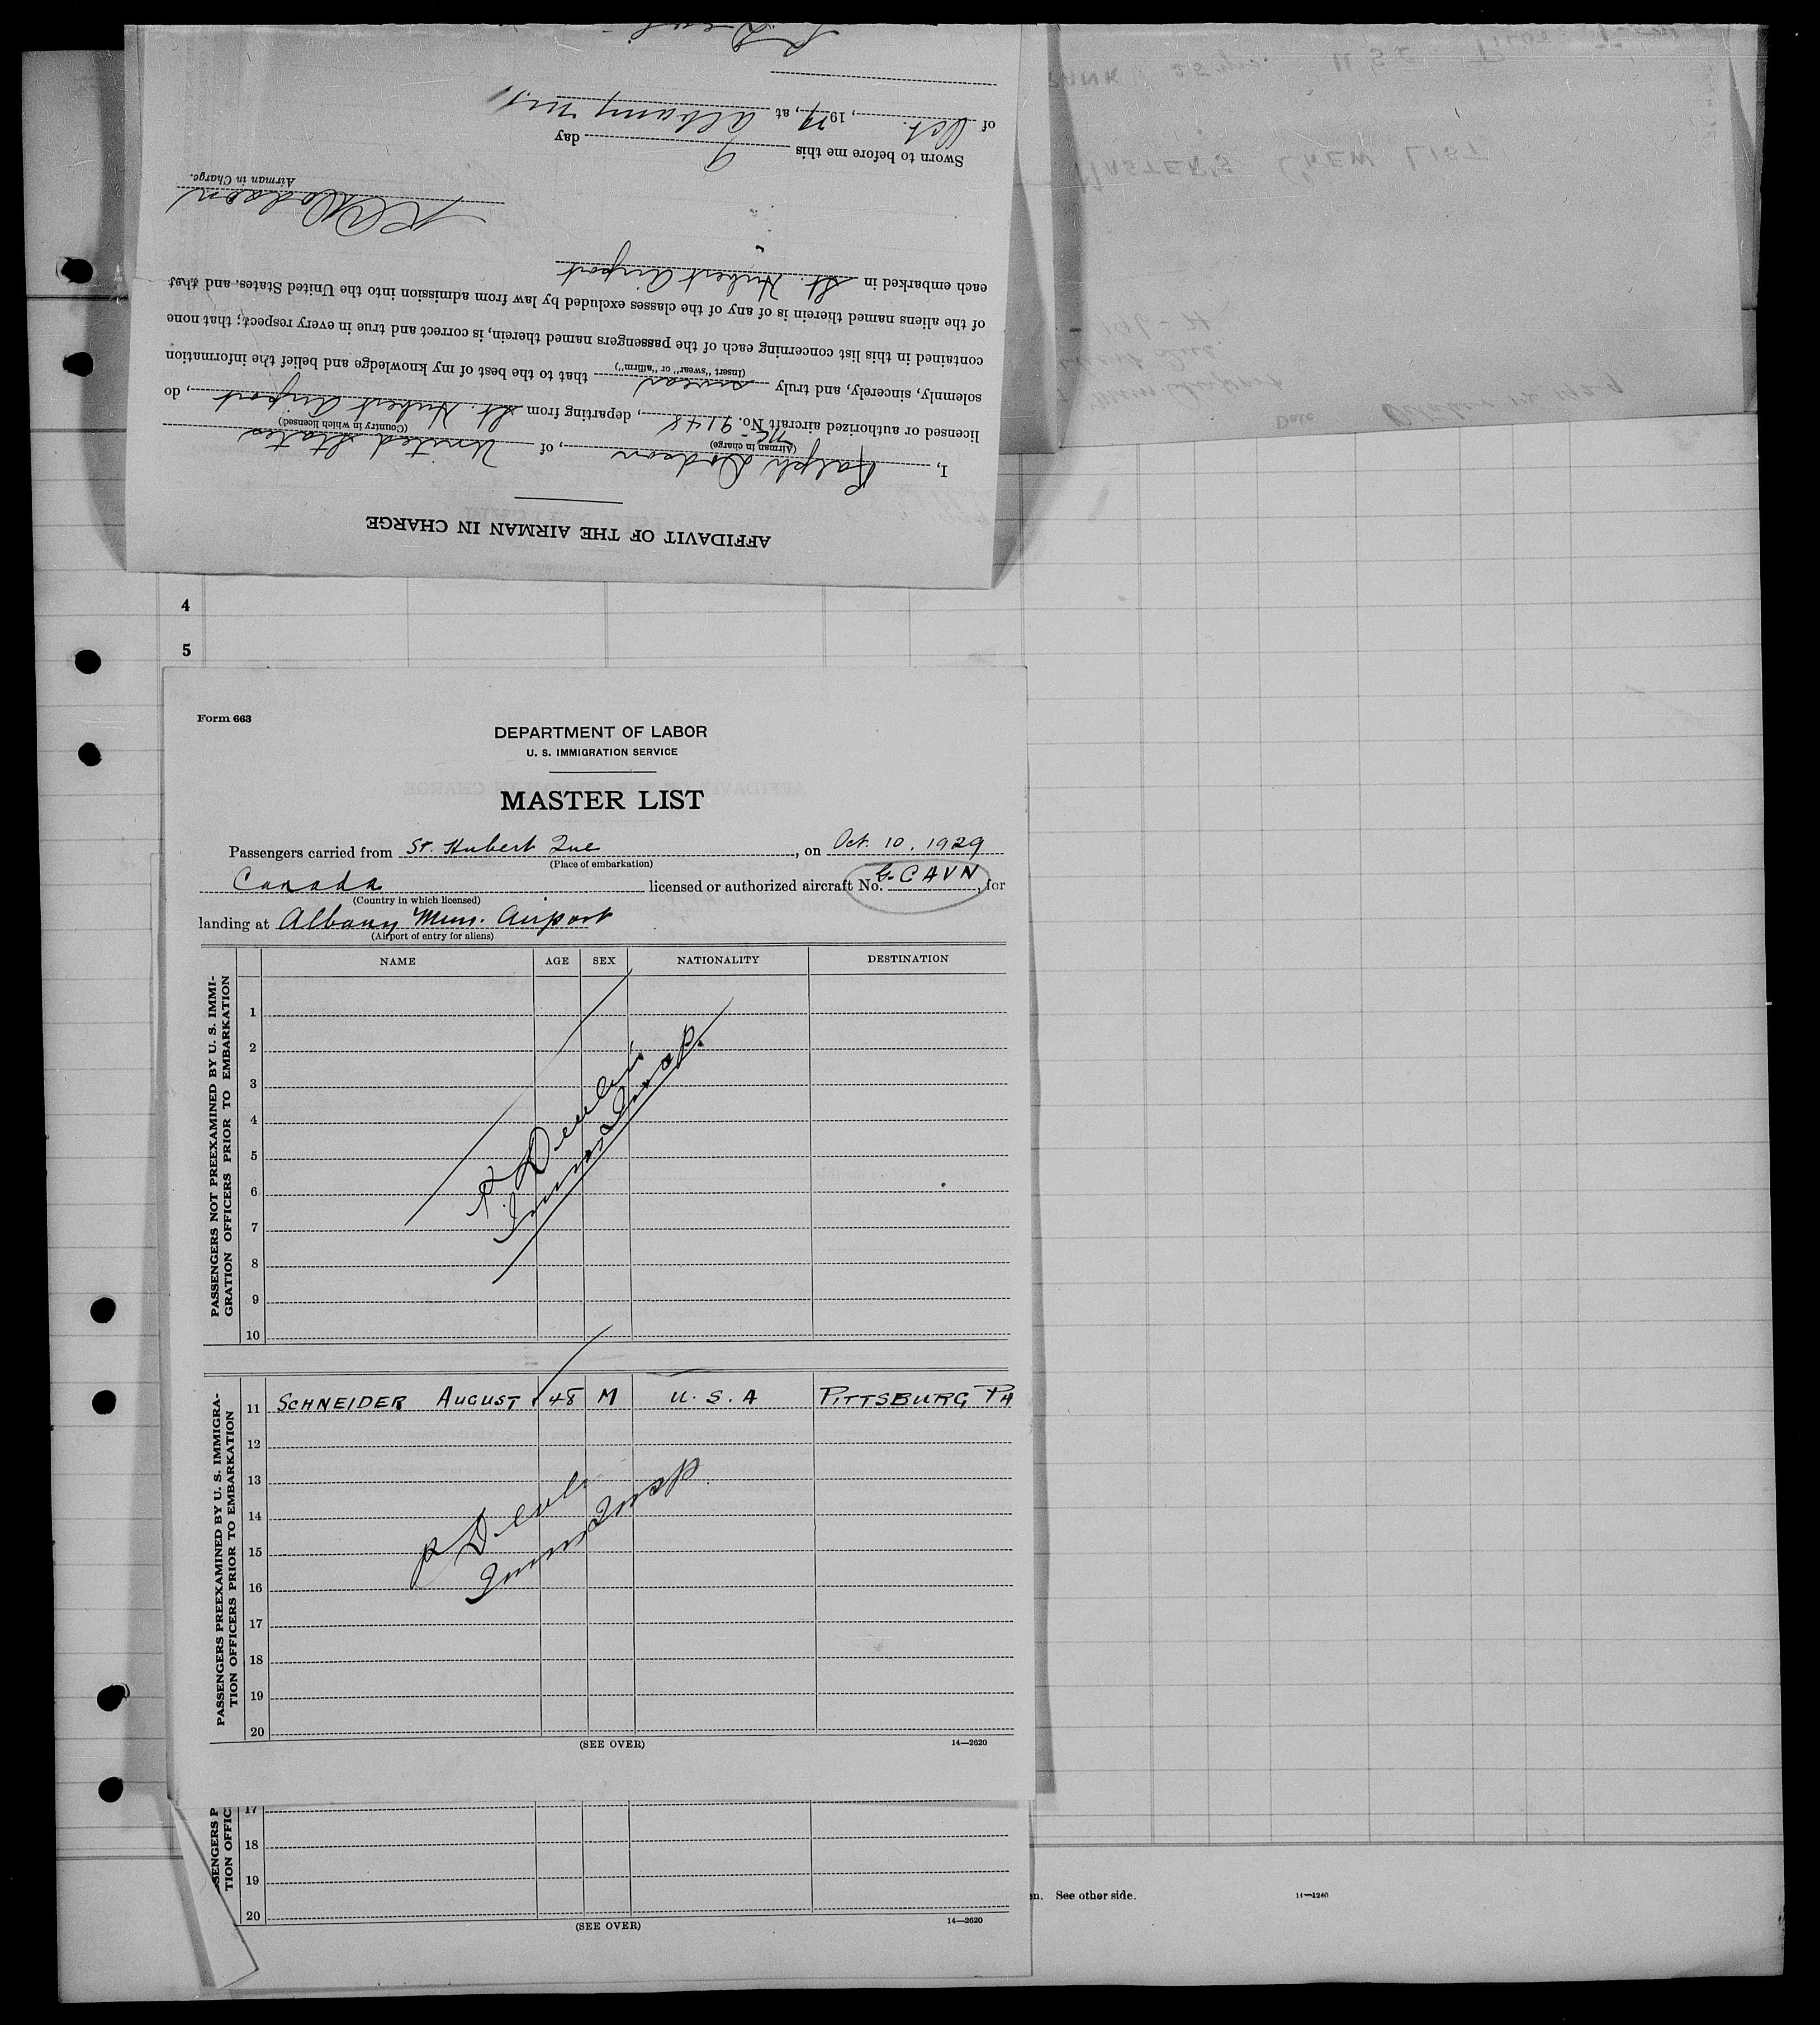 AFFIDAVIT OF THE AIRMAN IN CHARGE
I, Ralph Dodson, of United States
(Airman in charge) (Country in which licensed)
licensed or authorized aircraft No. NC-9148, departing from St. Hubert Airport, do
solemnly, sincerely, and truly swear that to the best of my knowledge and belief the information
(Insert "swear" or "affirm")
contained in this list concerning each of the passengers named therein, is correct and true in every respect; that none
of the aliens named therein is of any of the classes excluded by law from admission into the United States, and that
each embarked in St. Hubert Airport
Airman in Charge.
Sworn to before me this 9 day
of Oct., 19 29, at Albany N.Y.
MASTER'S CREW LIST
25 yrs. U S C
Date October 12, 1929
4
5
Form 663
DEPARTMENT OF LABOR
U. S. IMMIGRATION SERVICE
MASTER LIST
Passengers carried from St. Hubert Que, on Oct. 10, 1929
(Place of embarkation)
Canada licensed or authorized aircraft No. G-CAVN, for
(Country in which licensed)
landing at Albany Mun. Airport
(Airport of entry for aliens)
NAME AGE SEX NATIONALITY DESTINATION
PASSENGERS NOT PREEXAMINED BY U. S. IMMI-
GRATION OFFICERS PRIOR TO EMBARKATION
1
2
3
4
5
6
7
8
9
10
Imm Insp.
PASSENGERS PREEXAMINED BY U. S. IMMIGRA-
TION OFFICERS PRIOR TO EMBARKATION
11 SCHNEIDER AUGUST 48 M U. S. A PITTSBURG PA
12
13
14
15
16
17
18
19
20
Imm Insp
(SEE OVER) 14—2620
SENGERS P
TION OFFIC
17
18
19
20
(SEE OVER) 14—2620
n. See other side. 14—1240